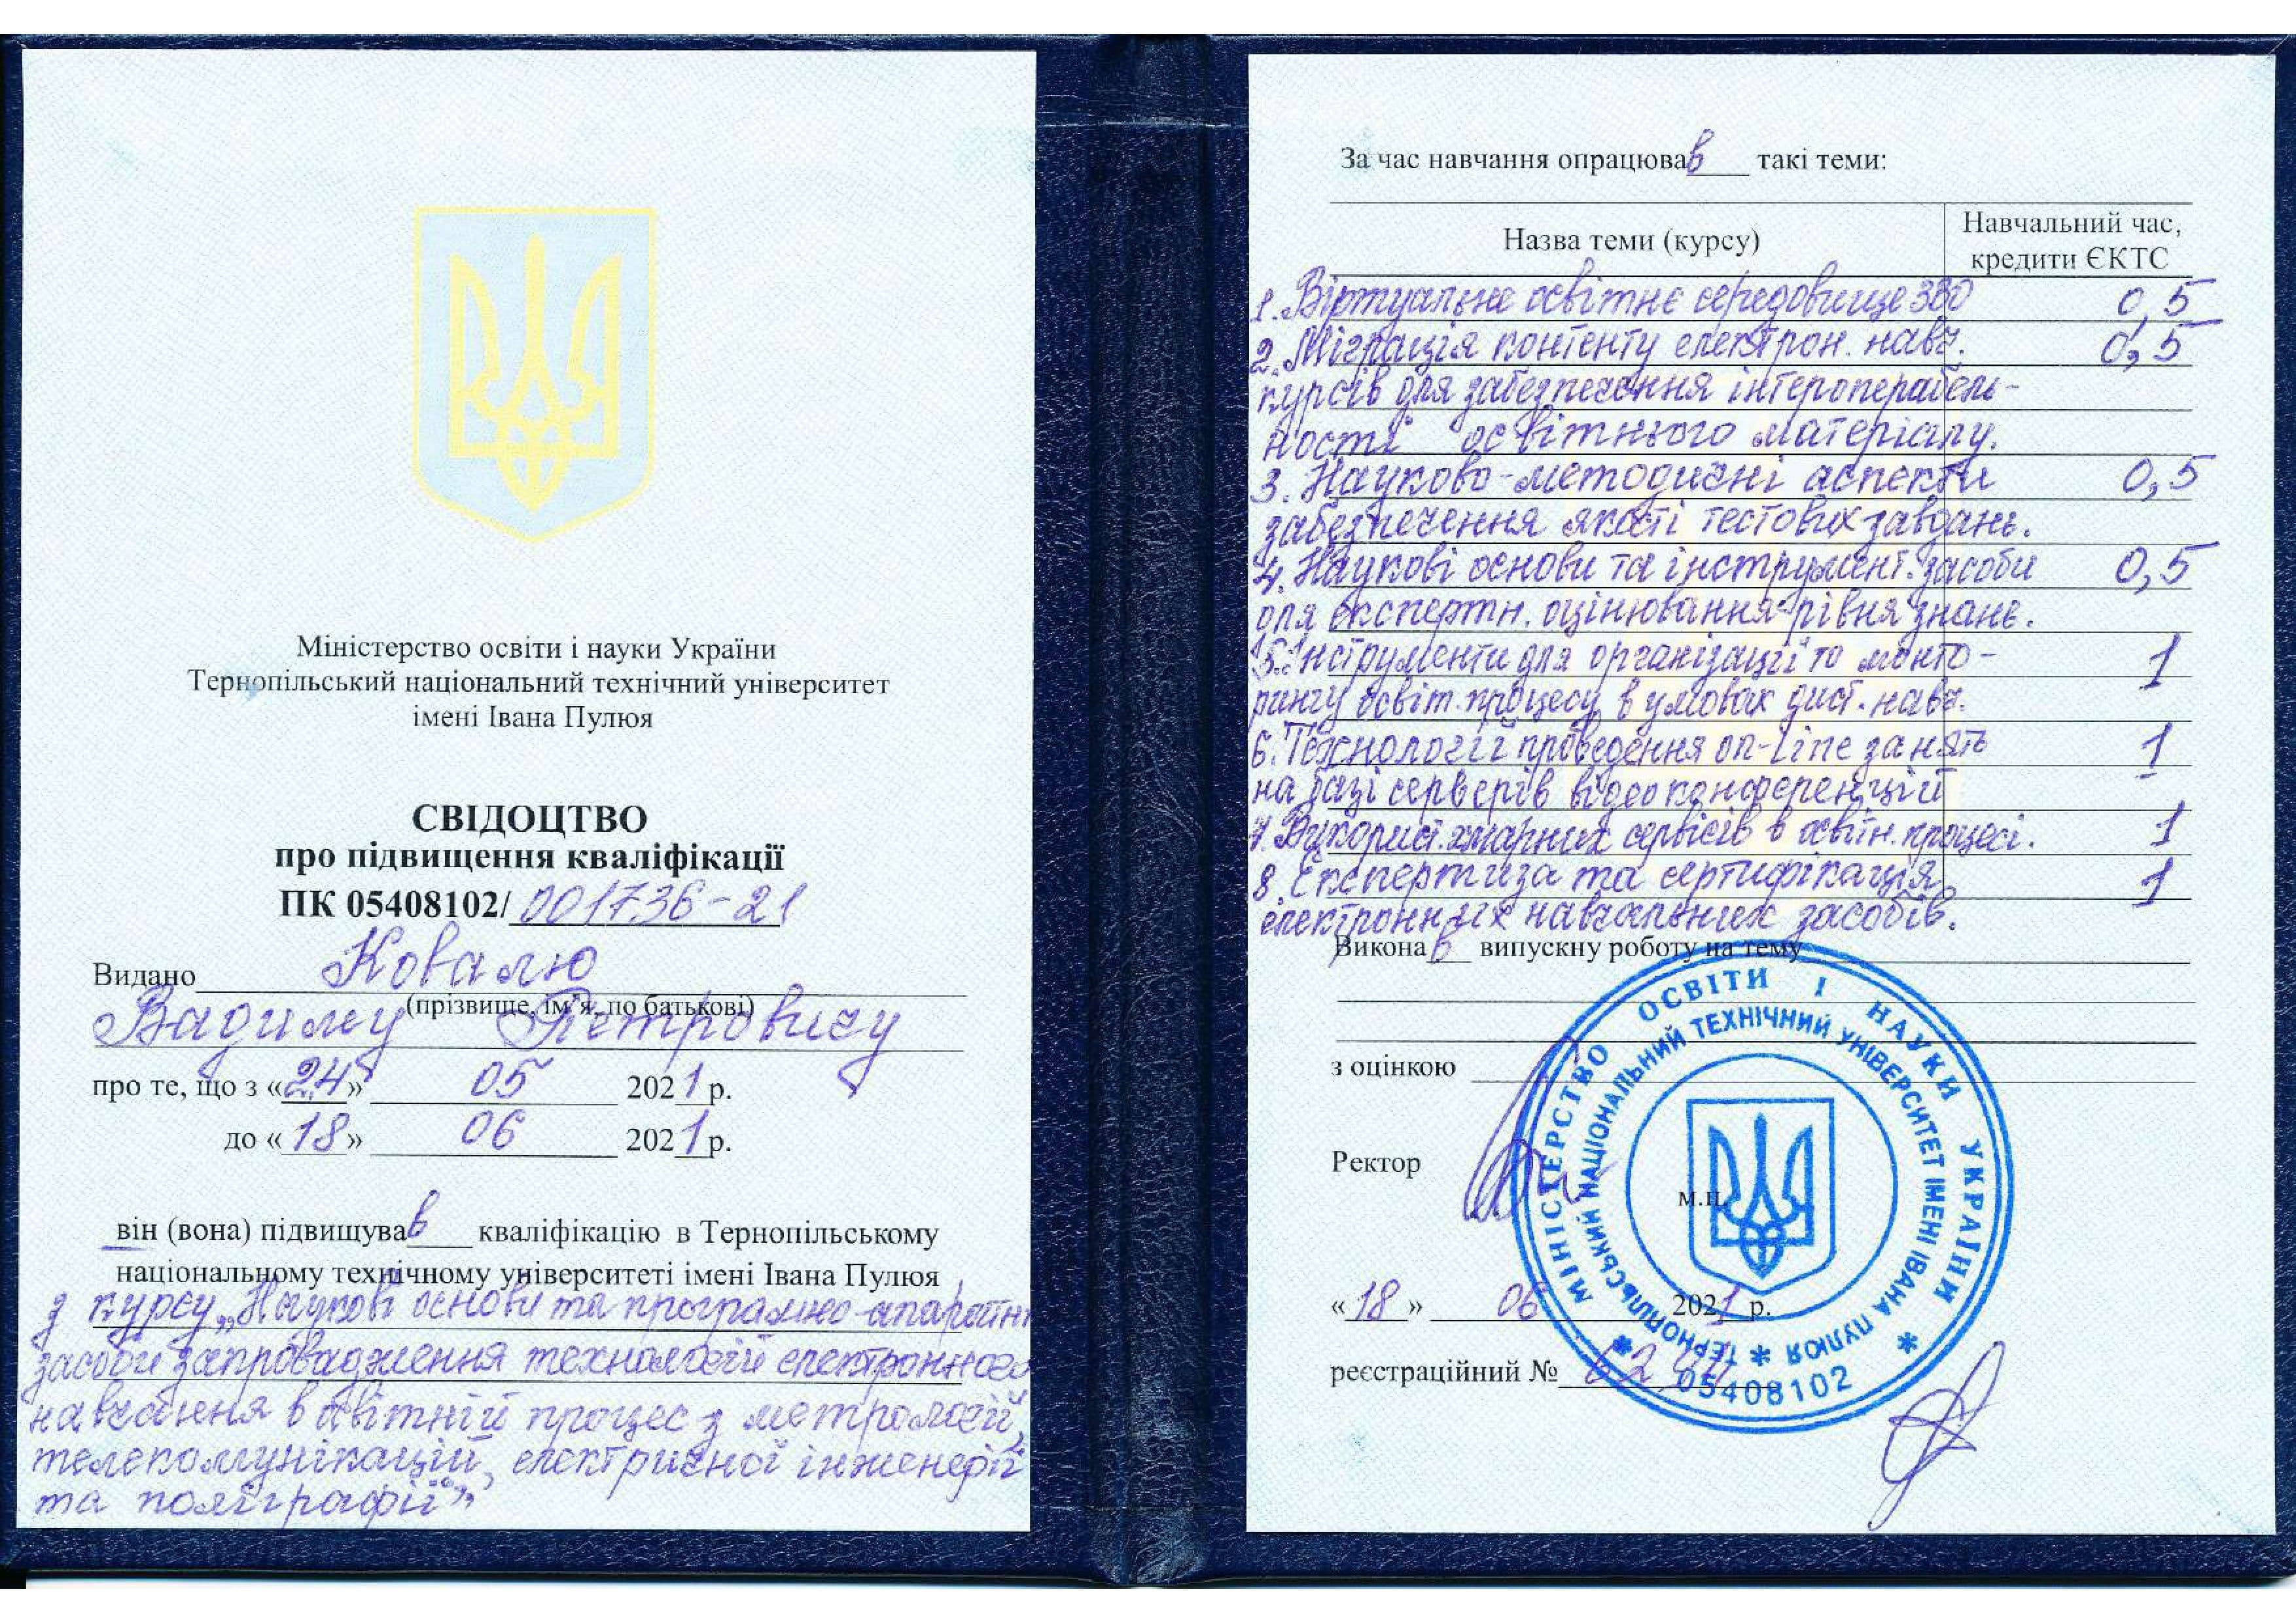 Міністерство освіти і науки України
Тернопільський національний технічний університет
імені Івана Пулюя
СВІДОЦТВО
про підвищення кваліфікації
ПК 05408102/ 001736-21
Видано Ковалю
(прізвище, ім'я, по батькові)
Вадиму Петровичу
про те, що з «24» 05 2021 р.
до «18» 06 2021 р.
він (вона) підвищував кваліфікацію в Тернопільському
національному технічному університеті імені Івана Пулюя
з курсу „Наукові основи та програмно-апаратн
засоби запровадження технологій електронного
навчання в освітній процес з метрології,
телекомунікацій, електричної інженерії
та поліграфії"
За час навчання опрацював такі теми:
Назва теми (курсу)
Навчальний час,
кредити ЄКТС
1. Віртуальне освітнє середовище 0,5
2. Міграція контенту електрон. навч. 0,5
курсів для забезпечення інтероперабель-
ності освітнього матеріалу.
3. Науково-методичні аспекти 0,5
забезпечення якості тестових завдань.
4. Наукові основи та інструмент. засоби 0,5
для експертн. оцінювання рівня знань.
5. Інструменти для організації та моніто- 1
рингу освіт. процесу в умовах дист. навч.
6. Технології проведення on-line занять 1
на базі серверів відеоконференцій
7. Використ. хмарних сервісів в освітн. процесі. 1
8. Експертиза та сертифікація 1
електронних навчальних засобів.
Виконав випускну роботу на тему
з оцінкою
Ректор
М.П.
«18» 06 2021 р.
реєстраційний №
МІНІСТЕРСТВО ОСВІТИ І НАУКИ УКРАЇНИ
ТЕРНОПІЛЬСЬКИЙ НАЦІОНАЛЬНИЙ ТЕХНІЧНИЙ УНІВЕРСИТЕТ ІМЕНІ ІВАНА ПУЛЮЯ
05408102